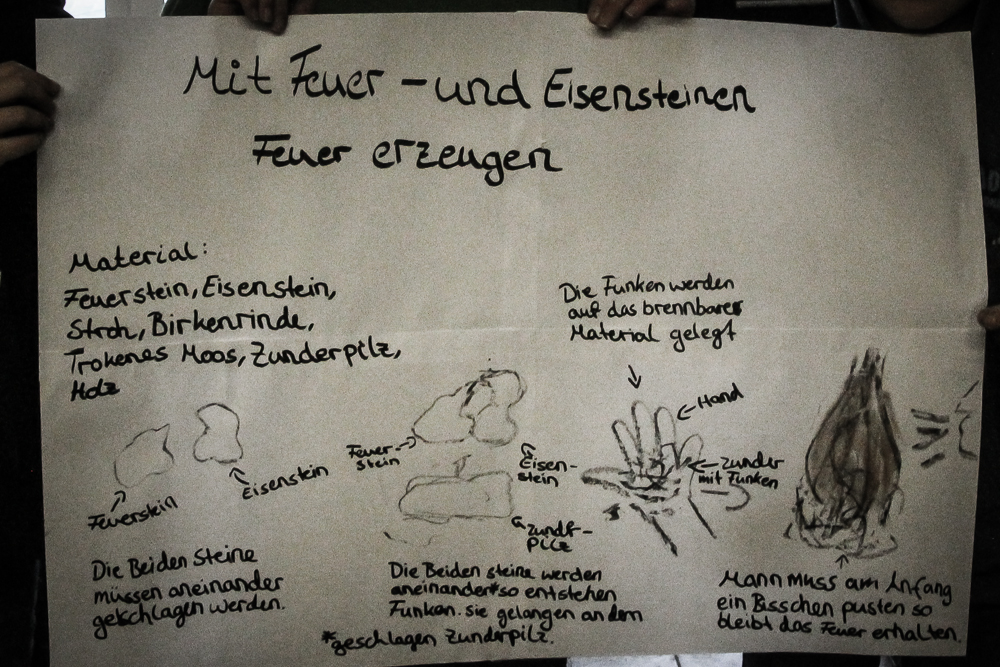 Mit Feuer - und Eisensteinen
Feuer erzeugen
Material:
Feuerstein, Eisenstein,
Stroh, Birkenrinde,
Trokenes Moos, Zunderpilz,
Holz
Feuerstein
Eisenstein
Die Beiden Steine
müssen aneinander
geschlagen werden.
Feuer-
stein
Eisen-
stein
Zunder-
Pilz
Die Beiden steine werden
aneinander*so entstehen
Funken. sie gelangen an dem
*geschlagen Zunderpilz.
Die Funken werden
auf das brennbares
Material gelegt
Hand
Zunder
mit Funken
Mann muss am Anfang
ein Bisschen pusten so
bleibt das Feuer erhalten.